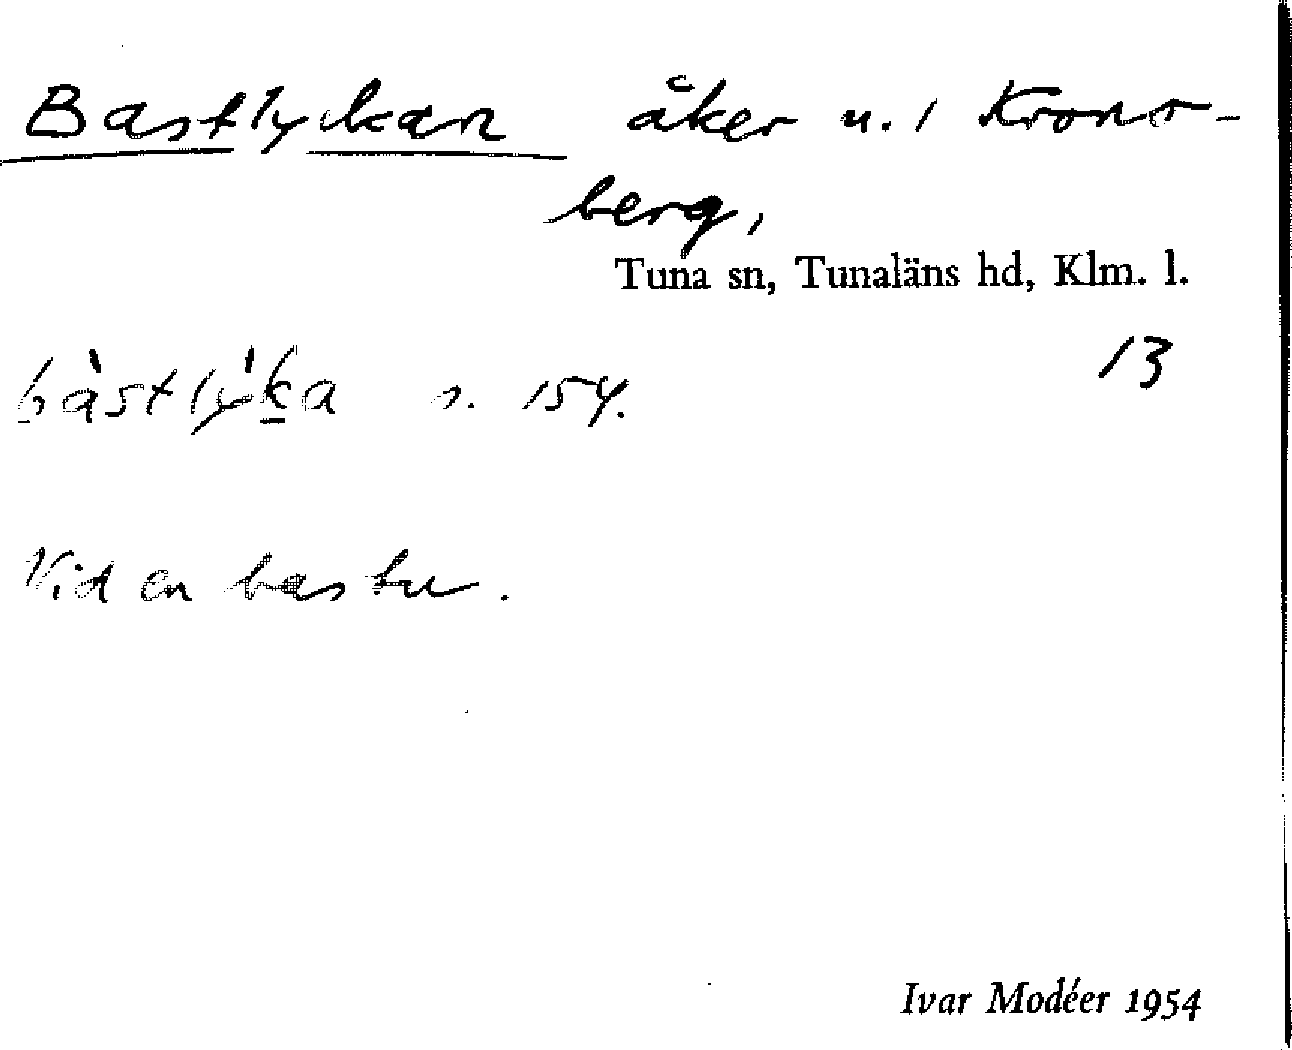 Bastlyckan åker u. 1 Krons-
berg,
Tuna sn, Tunaläns hd, Klm. l.
13
bàstlỳ́ka s. 154.
Vid en bastu.
Ivar Modéer 1954